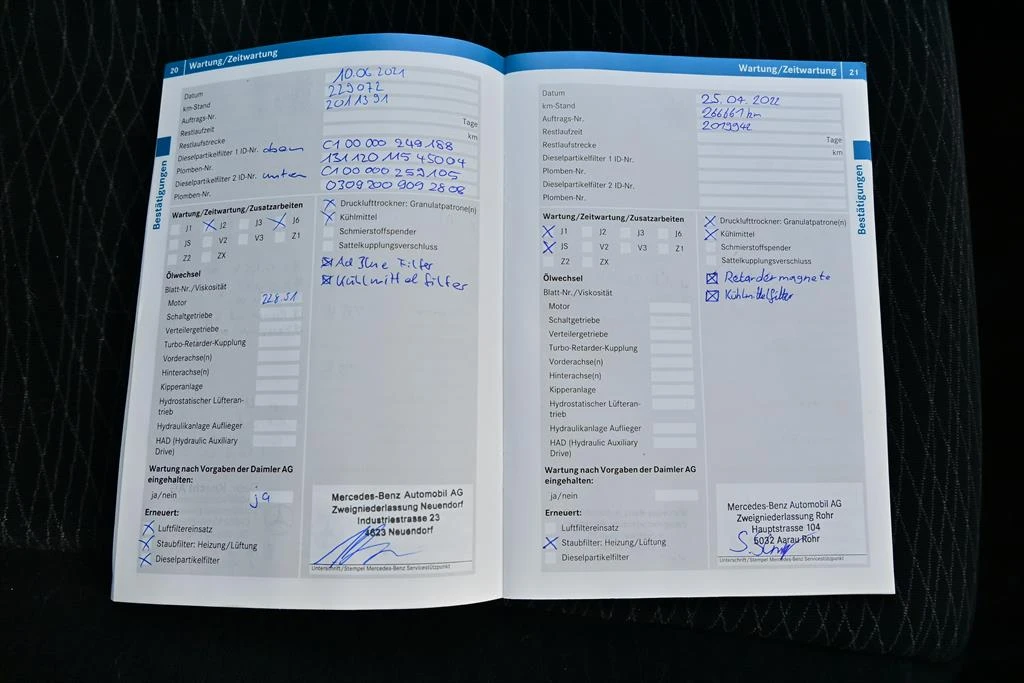 20 Wartung/Zeitwartung
Datum 10.06 2021
km-Stand 229072
Auftrags-Nr. 2011391
Restlaufzeit Tage
Restlaufstrecke km
Dieselpartikelfilter 1 ID-Nr. oben C1 00 000 249 188
Plomben-Nr. 131 120 115 45004
Dieselpartikelfilter 2 ID-Nr. unten C100 000 259105
Plomben-Nr. 0309 200 909 28 08
Bestätigungen
Wartung/Zeitwartung/Zusatzarbeiten
J1 J2 J3 J6
JS V2 V3 Z1
Z2 ZX
Drucklufttrockner: Granulatpatrone(n)
Kühlmittel
Schmierstoffspender
Sattelkupplungsverschluss
Ad Blue Filter
Kühlmittelfilter
Ölwechsel
Blatt-Nr./Viskosität
Motor 228.51
Schaltgetriebe
Verteilergetriebe
Turbo-Retarder-Kupplung
Vorderachse(n)
Hinterachse(n)
Kipperanlage
Hydrostatischer Lüfteran-
trieb
Hydraulikanlage Auflieger
HAD (Hydraulic Auxiliary
Drive)
Wartung nach Vorgaben der Daimler AG
eingehalten:
ja/nein ja
Erneuert:
Luftfiltereinsatz
Staubfilter: Heizung/Lüftung
Dieselpartikelfilter
Mercedes-Benz Automobil AG
Zweigniederlassung Neuendorf
Industriestrasse 23
4623 Neuendorf
Unterschrift/Stempel Mercedes-Benz Servicestützpunkt
Wartung/Zeitwartung 21
Datum 25.04.2022
km-Stand 266661 km
Auftrags-Nr. 2019942
Restlaufzeit Tage
Restlaufstrecke km
Dieselpartikelfilter 1 ID-Nr.
Plomben-Nr.
Dieselpartikelfilter 2 ID-Nr.
Plomben-Nr.
Bestätigungen
Wartung/Zeitwartung/Zusatzarbeiten
J1 J2 J3 J6
JS V2 V3 Z1
Z2 ZX
Drucklufttrockner: Granulatpatrone(n)
Kühlmittel
Schmierstoffspender
Sattelkupplungsverschluss
Retardermagnete
Kühlmittelfilter
Ölwechsel
Blatt-Nr./Viskosität
Motor
Schaltgetriebe
Verteilergetriebe
Turbo-Retarder-Kupplung
Vorderachse(n)
Hinterachse(n)
Kipperanlage
Hydrostatischer Lüfteran-
trieb
Hydraulikanlage Auflieger
HAD (Hydraulic Auxiliary
Drive)
Wartung nach Vorgaben der Daimler AG
eingehalten:
ja/nein
Erneuert:
Luftfiltereinsatz
Staubfilter: Heizung/Lüftung
Dieselpartikelfilter
Mercedes-Benz Automobil AG
Zweigniederlassung Rohr
Hauptstrasse 104
5032 Aarau Rohr
Unterschrift/Stempel Mercedes-Benz Servicestützpunkt